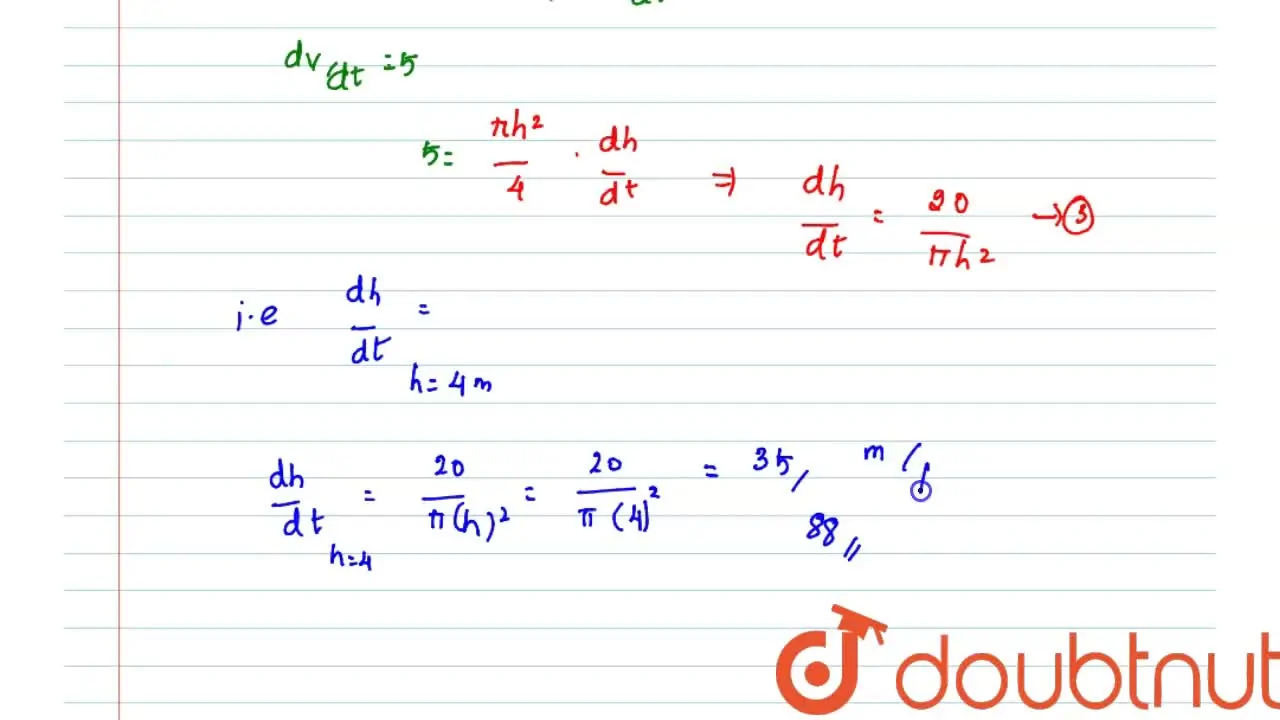 dv/dt = 5
5 = πh²/4 · dh/dt ⇒ dh/dt = 20/πh² → ③
i.e dh/dt =
h = 4 m
dh/dt = 20/π(h)² = 20/π(4)² = 35/88 m/
h=4
doubtnut